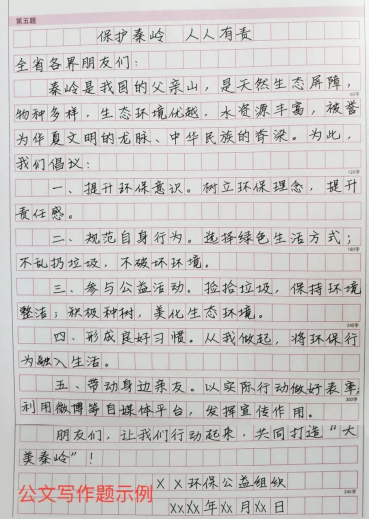 第五题
保护秦岭 人人有责
全省各界朋友们：
秦岭是我国的父亲山，是天然生态屏障，
物种多样，生态环境优越，水资源丰富，被誉
为华夏文明的龙脉、中华民族的脊梁。为此，
我们倡议：
一、提升环保意识。树立环保理念，提升
责任感。
二、规范自身行为。选择绿色生活方式；
不乱扔垃圾，不破坏环境。
三、参与公益活动。捡拾垃圾，保持环境
整洁；积极种树，美化生态环境。
四、形成良好习惯。从我做起，将环保行
为融入生活。
五、带动身边亲友。以实际行动做好表率，
利用微博等自媒体平台，发挥宣传作用。
朋友们，让我们行动起来，共同打造“大
美秦岭”！
××环保公益组织
公文写作题示例
××××年××月××日